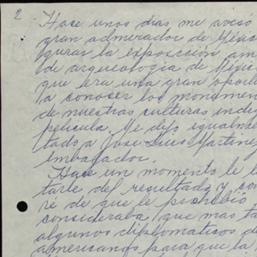 2
Hace unos días me avisó
gran admirador de México
gurar la exposición am
de arqueología de Méjic
que era una gran oport
a conocer los monumen
de nuestras culturas indí
película. Le dijo igualme
ltado a José Luis Martínez
embajador.
Hace un momento le
tarte del resultado y, con
ré de que le
consideraba que mas ta
algunos diplomáticos de
americanos para que la